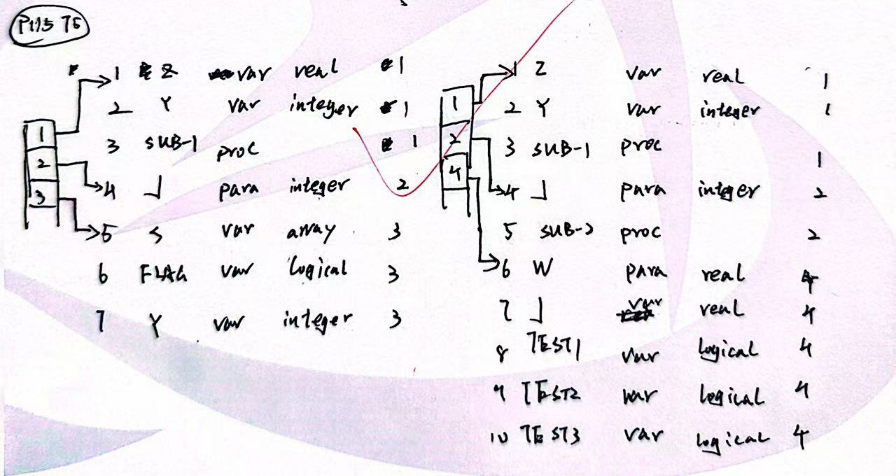 P113 T5
1 Z var real 1
2 Y var integer 1
3 SUB-1 proc 1
4 J para integer 2
5 S var array 3
6 FLAG var logical 3
7 Y var integer 3
1
2
3
1 Z var real 1
2 Y var integer 1
3 SUB-1 proc 1
4 J para integer 2
5 SUB-2 proc 2
6 W para real 4
7 J var real 4
8 TEST1 var logical 4
9 TEST2 var logical 4
10 TEST3 var logical 4
1
2
4